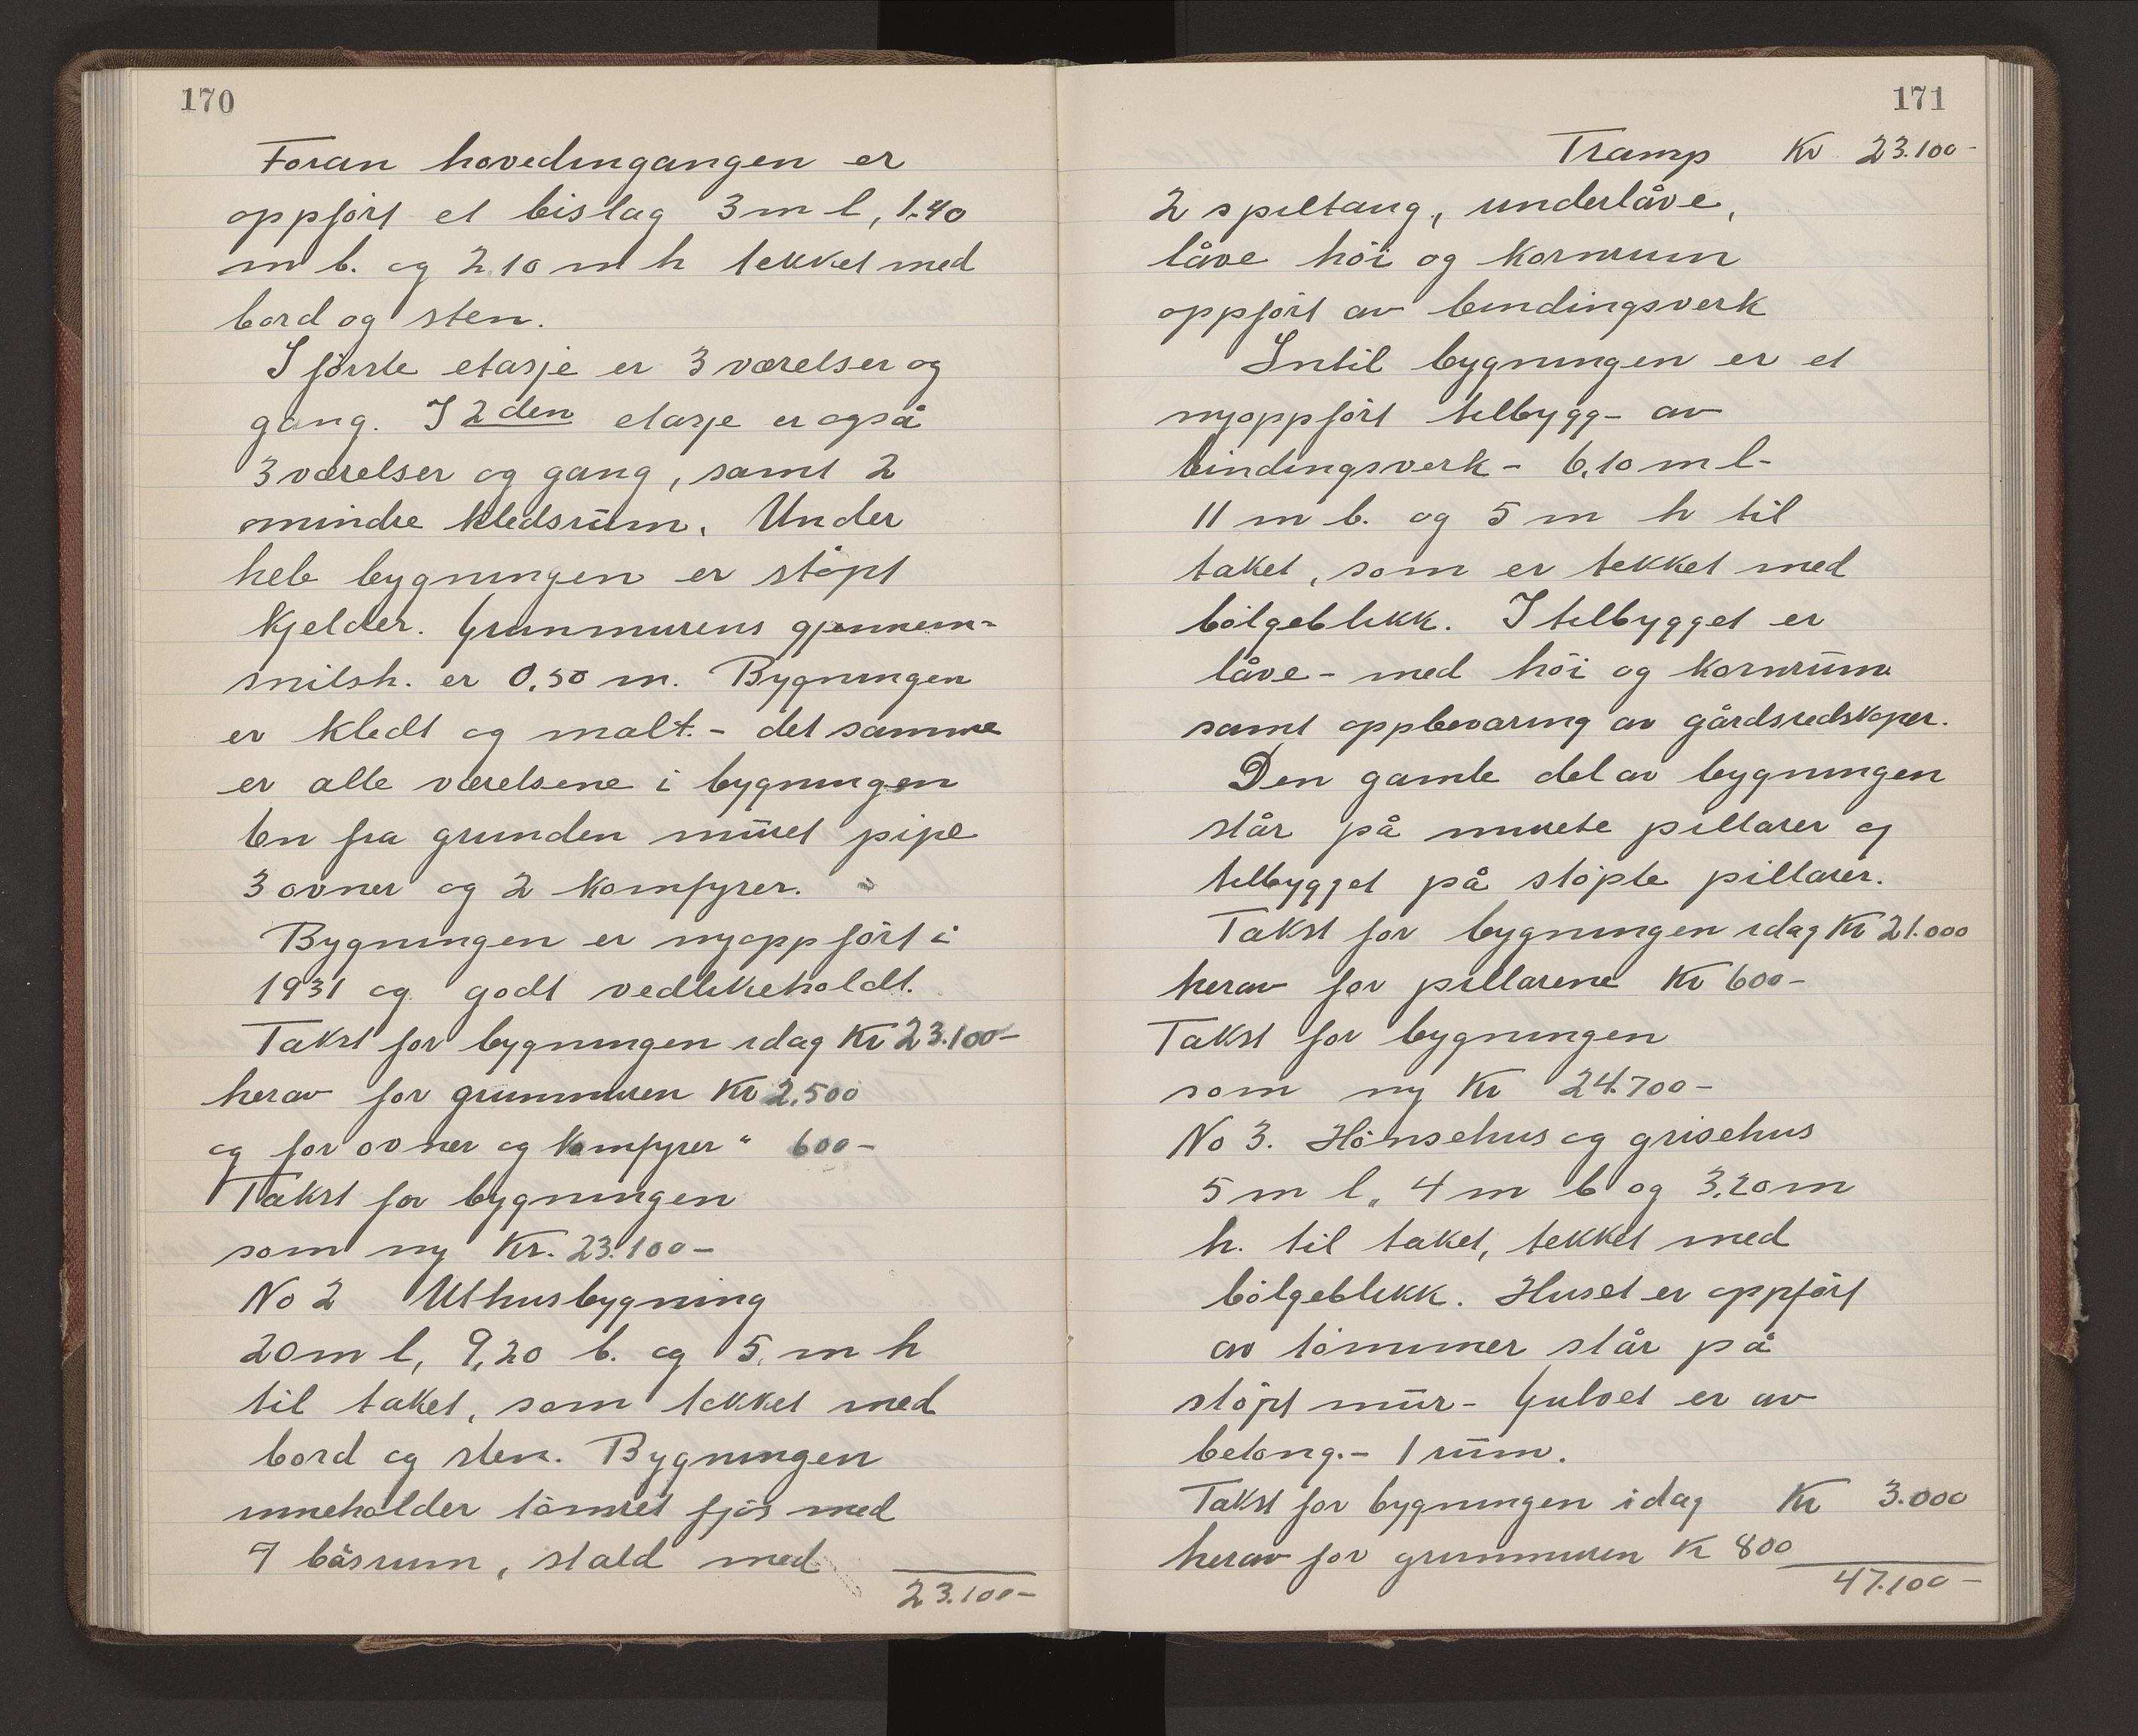 170
Foran hovedingangen er
oppført et bislag 3 m l, 1.40
m b. og 2,10 m h tekket med
bord og sten.
I første etasje er 3 værelser og
gang. I 2den etasje er også
3 værelser og gang, samt 2
mindre kledsrum. Under
hele bygningen er støpt
kjelder. Grunnmurens gjennem-
snitsh. er 0.50 m. Bygningen
er kledt og malt. - det samme
er alle værelsene i bygningen
En fra grunden muret pipe
3 ovner og 2 komfyrer.
Bygningen er nyoppført i
1931 og godt vedlikeholdt.
Takst for bygningen idag Kr 23.100-
herav for grunmuren Kr 2.500
og for ovner og komfyrer " 600-
Takst for bygningen
som ny Kr. 23.100-
No 2 Uthusbygning
20 m l, 9,20 b. og 5 m h
til taket, som tekket med
bord og sten. Bygningen
inneholder tømret fjøs med
7 båsrum, stald med
23.100-
171
Tramp Kr 23.100-
2 spiltaug, underlåve,
låve høi og kornrum
oppført av bindingsverk
Intil bygningen er et
nyoppført tilbygg - av
bindingsverk - 6,10 m l-
11 m b. og 5 m h til
taket, som er tekket med
bølgeblikk. I tilbygget er
låve - med høi og kornrum
samt oppbevaring av gårdsredskaper.
Den gamle del av bygningen
står på murete pillarer og
tilbygget på støpte pillarer.
Takst for bygningen idag Kr 21.000
herav for pillarene Kr 600-
Takst for bygningen
som ny Kr 24.700-
No 3. Hønsehus og grisehus
5 m l, 4 m b og 3,20 m
h. til taket, tekket med
bølgeblikk. Huset er oppført
av tømmer står på
støpt mur - Gulvet er av
betong. - 1 rum.
Takst for bygningen idag Kr 3.000
herav for grunmuren K 800
47.100-